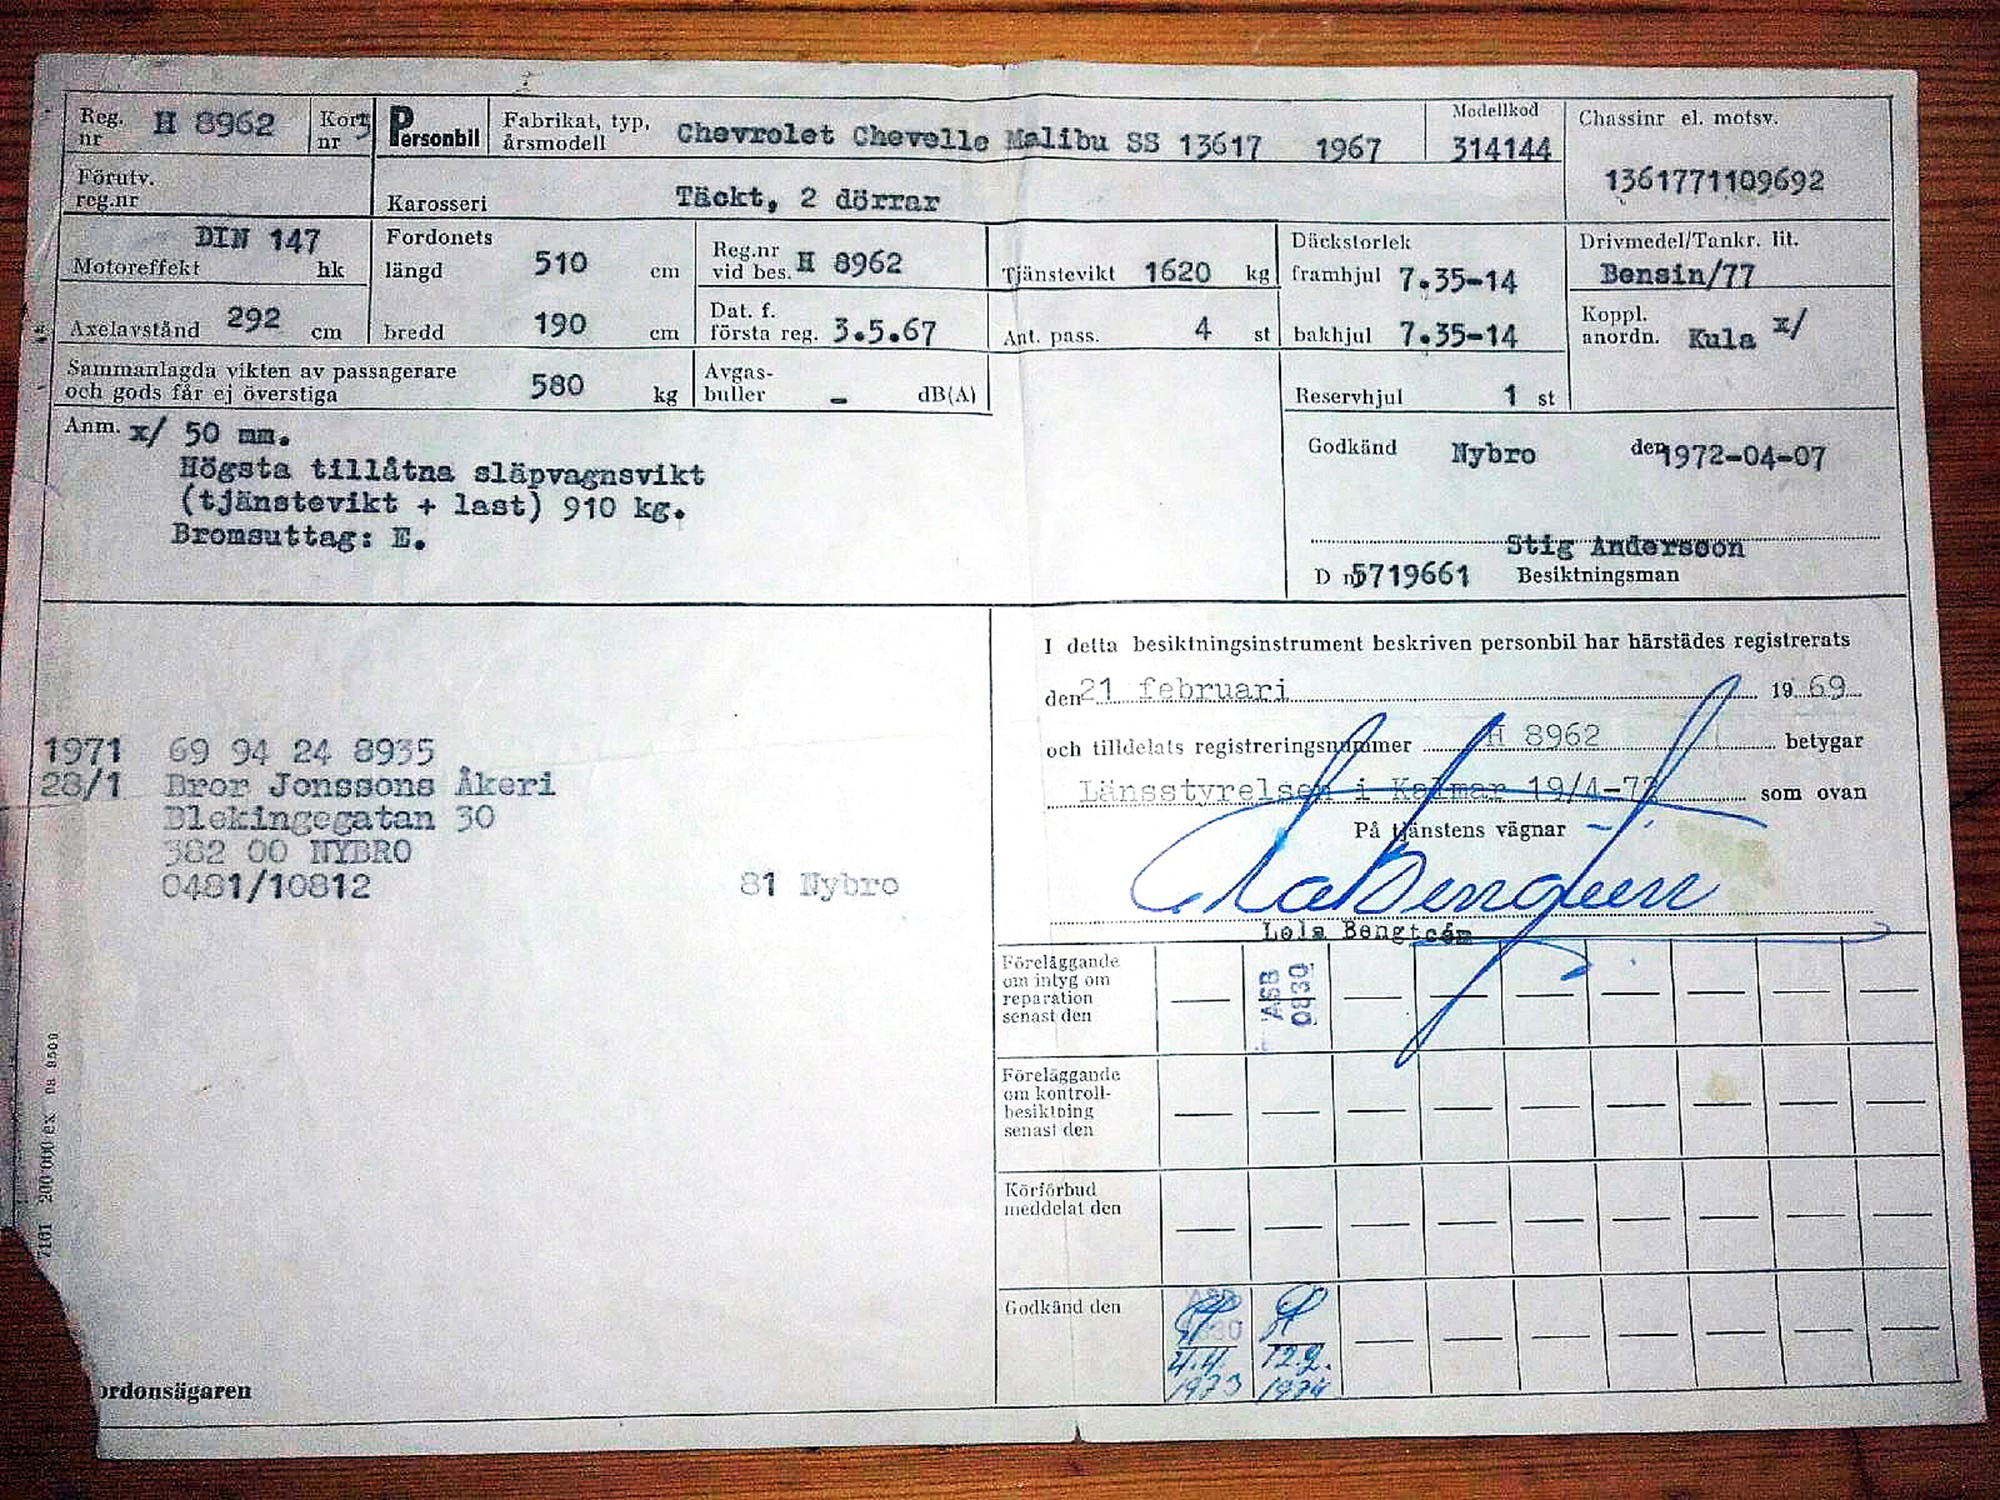 Reg. nr H 8962 Kort nr 3 Personbil Fabrikat, typ, årsmodell Chevrolet Chevelle Malibu SS 13617 1967 Modellkod 314144 Chassinr el. motsv. 1361771109692
Förutv. reg.nr Karosseri Täckt, 2 dörrar
Motoreffekt DIN 147 hk Fordonets längd 510 cm Reg.nr vid bes. H 8962 Tjänstevikt 1620 kg Däckstorlek framhjul 7.35-14 Drivmedel/Tankr. lit. Bensin/77
Axelavstånd 292 cm bredd 190 cm Dat. f. första reg. 3.5.67 Ant. pass. 4 st bakhjul 7.35-14 Koppl. anordn. Kula x/
Sammanlagda vikten av passagerare
och gods får ej överstiga 580 kg Avgas-buller - dB(A) Reservhjul 1 st
Anm. x/ 50 mm.
Högsta tillåtna släpvagnsvikt
(tjänstevikt + last) 910 kg.
Bromsuttag: E.
Godkänd Nybro den 1972-04-07
Stig Andersson
D nr 5719661 Besiktningsman
I detta besiktningsinstrument beskriven personbil har härstädes registrerats
den 21 februari 19 69
och tilldelats registreringsnummer H 8962 betygar
Länsstyrelsen i Kalmar 19/4-72 som ovan
På tjänstens vägnar
Bengtsén
1971 69 94 24 8935
28/1 Bror Jonssons Åkeri
Blekingegatan 30
382 00 NYBRO
0481/10812 81 Nybro
Föreläggande
om intyg om
reparation
senast den
ASB
0830
Föreläggande
om kontroll-
besiktning
senast den
Körförbud
meddelat den
Godkänd den
4.4. 1973
12.2. 1974
7101 200 000 ex
ordonsägaren